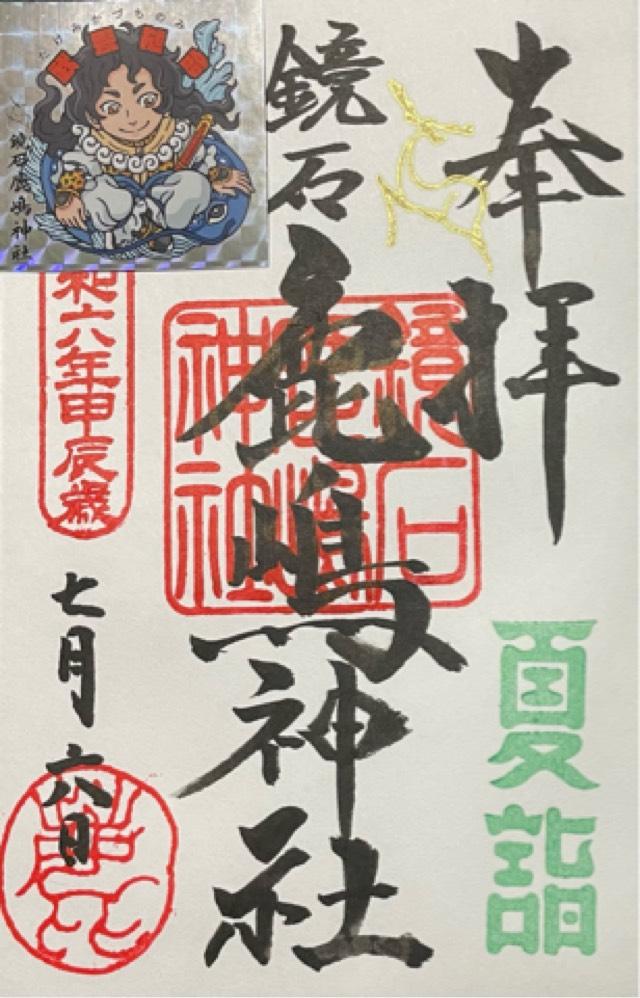 奉拝
夏詣
鏡石
鹿嶋神社
鏡石
鹿嶋
神社
和六年甲辰歳
七月六日
鏡石鹿嶋神社